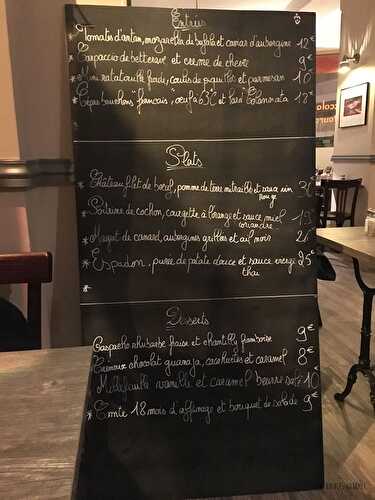 Entrées
* Tomates d'antan, mozzarella di bufala et caviar d'aubergine 12€
* Carpaccio de betterave et creme de chevre 9€
* Mini ratatouille froide, coulis de piquillos et parmesan 10€
* Cèpes bouchons "francais" oeuf à 63°C et lard Colonnata 18€
Plats
* Château filet de boeuf, pomme de terre mitraille et sauce vin 30€
rouge
* Poitrine de cochon, courgette à l'orange et sauce miel 19€
coriandre
* Magret de canard, aubergines grillées et ail noir 21€
* Espadon, purée de patate douce et sauce vierge 25€
thai
*
Desserts
Gaspacho rhubarbe fraise et chantilly framboise 9€
Crémeux chocolat guanaja, cacahuètes et caramel 8€
Millefeuille vanille et caramel beurre salé 10€
* Comté 18 mois d'affinage et bouquet de salade 9€